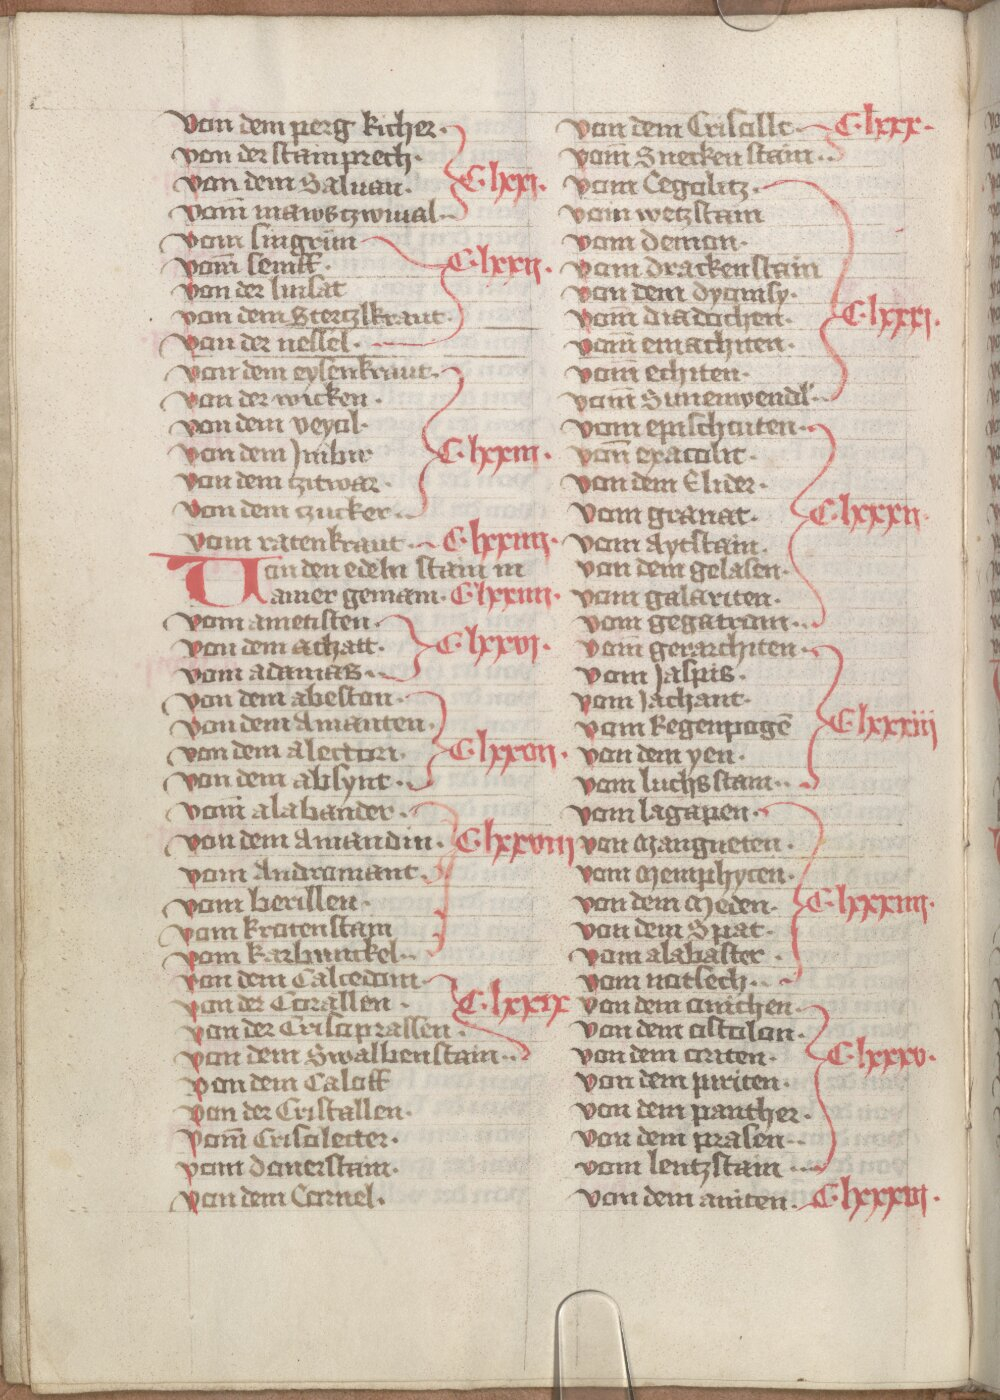 Von dem perg kicher·
Von der stainprech·
Von dem Saluan· C·lxxi·
Vom̄ mawsczwiual·
Vom singrün
Vom̄ senff· C·lxxii·
Von der linsat
Von dem Stertzlkraut·
Von der nessel·
Von dem eysenkraut·
Von der wicken·
Von dem veyol·
Von dem Jmbir C·lxxiii·
Von dem zitwar·
Von dem zucker·
Vom ratenkraut·· C·lxxiiii·
Von den edeln stain in
ainer gemain· C·lxxiiii·
Vom ametisten·
Von dem achatt· C·lxxvi·
Vom adamas·
Von dem abeston·
Von dem Amanten·
Von dem alectori· C·lxxvii·
Von dem absynt·
Vom̄ alabander·
Von dem Amandin· C·lxxviii
Vom Andromant·
Vom berillen·
Vom krotenstain
Vom karbunckel·
Von dem Calcedoni·
Von der Corallen· C·lxxix
Von der Crisoprassen·
Von dem Swalbenstain··
Von dem Caloff
Von der Cristallen·
Vom̄ Crisolecter·
Vom donerstain·
Von dem Cornel·
Von dem Crisollt· C·lxxx·
Vom̄ Snecken stain··
Vom Cegolitz·
Vom wetzstain
Vom demon·
Vom drackenstain
Von dem dyonisy·
Vom diadochen· C·lxxxi·
Vom̄ emachiten·
Vom̄ echiten·
Vom Sunenwendl·
Vom epischtiten·
Vom̄ exacolit·
Von dem Elider·
Vom granat· C·lxxxii·
Vom Aytstain·
Von dem gelasen·
Vom galariten·
Vom gegatrom··
Vom̄ gerarchiten·
Vom Jaspis·
Vom Jachant·
Vom Regenpogē C·lxxxiii
Von dem yen·
Vom luchsstain··
Vom lagapen·
Von Mangneten·
Vom Memphyten·
Von dem Meden· C·lxxxiiii·
Von dem Spat·
Vom alabaster·
Vom notlech··
Von dem onichen·
Von dem ostolon·
Von dem oriten· C·lxxxv·
Von dem piriten·
Von dem panther·
Von dem prasen··
Vom lentzstain··
Von dem aniten· C·lxxxvi·